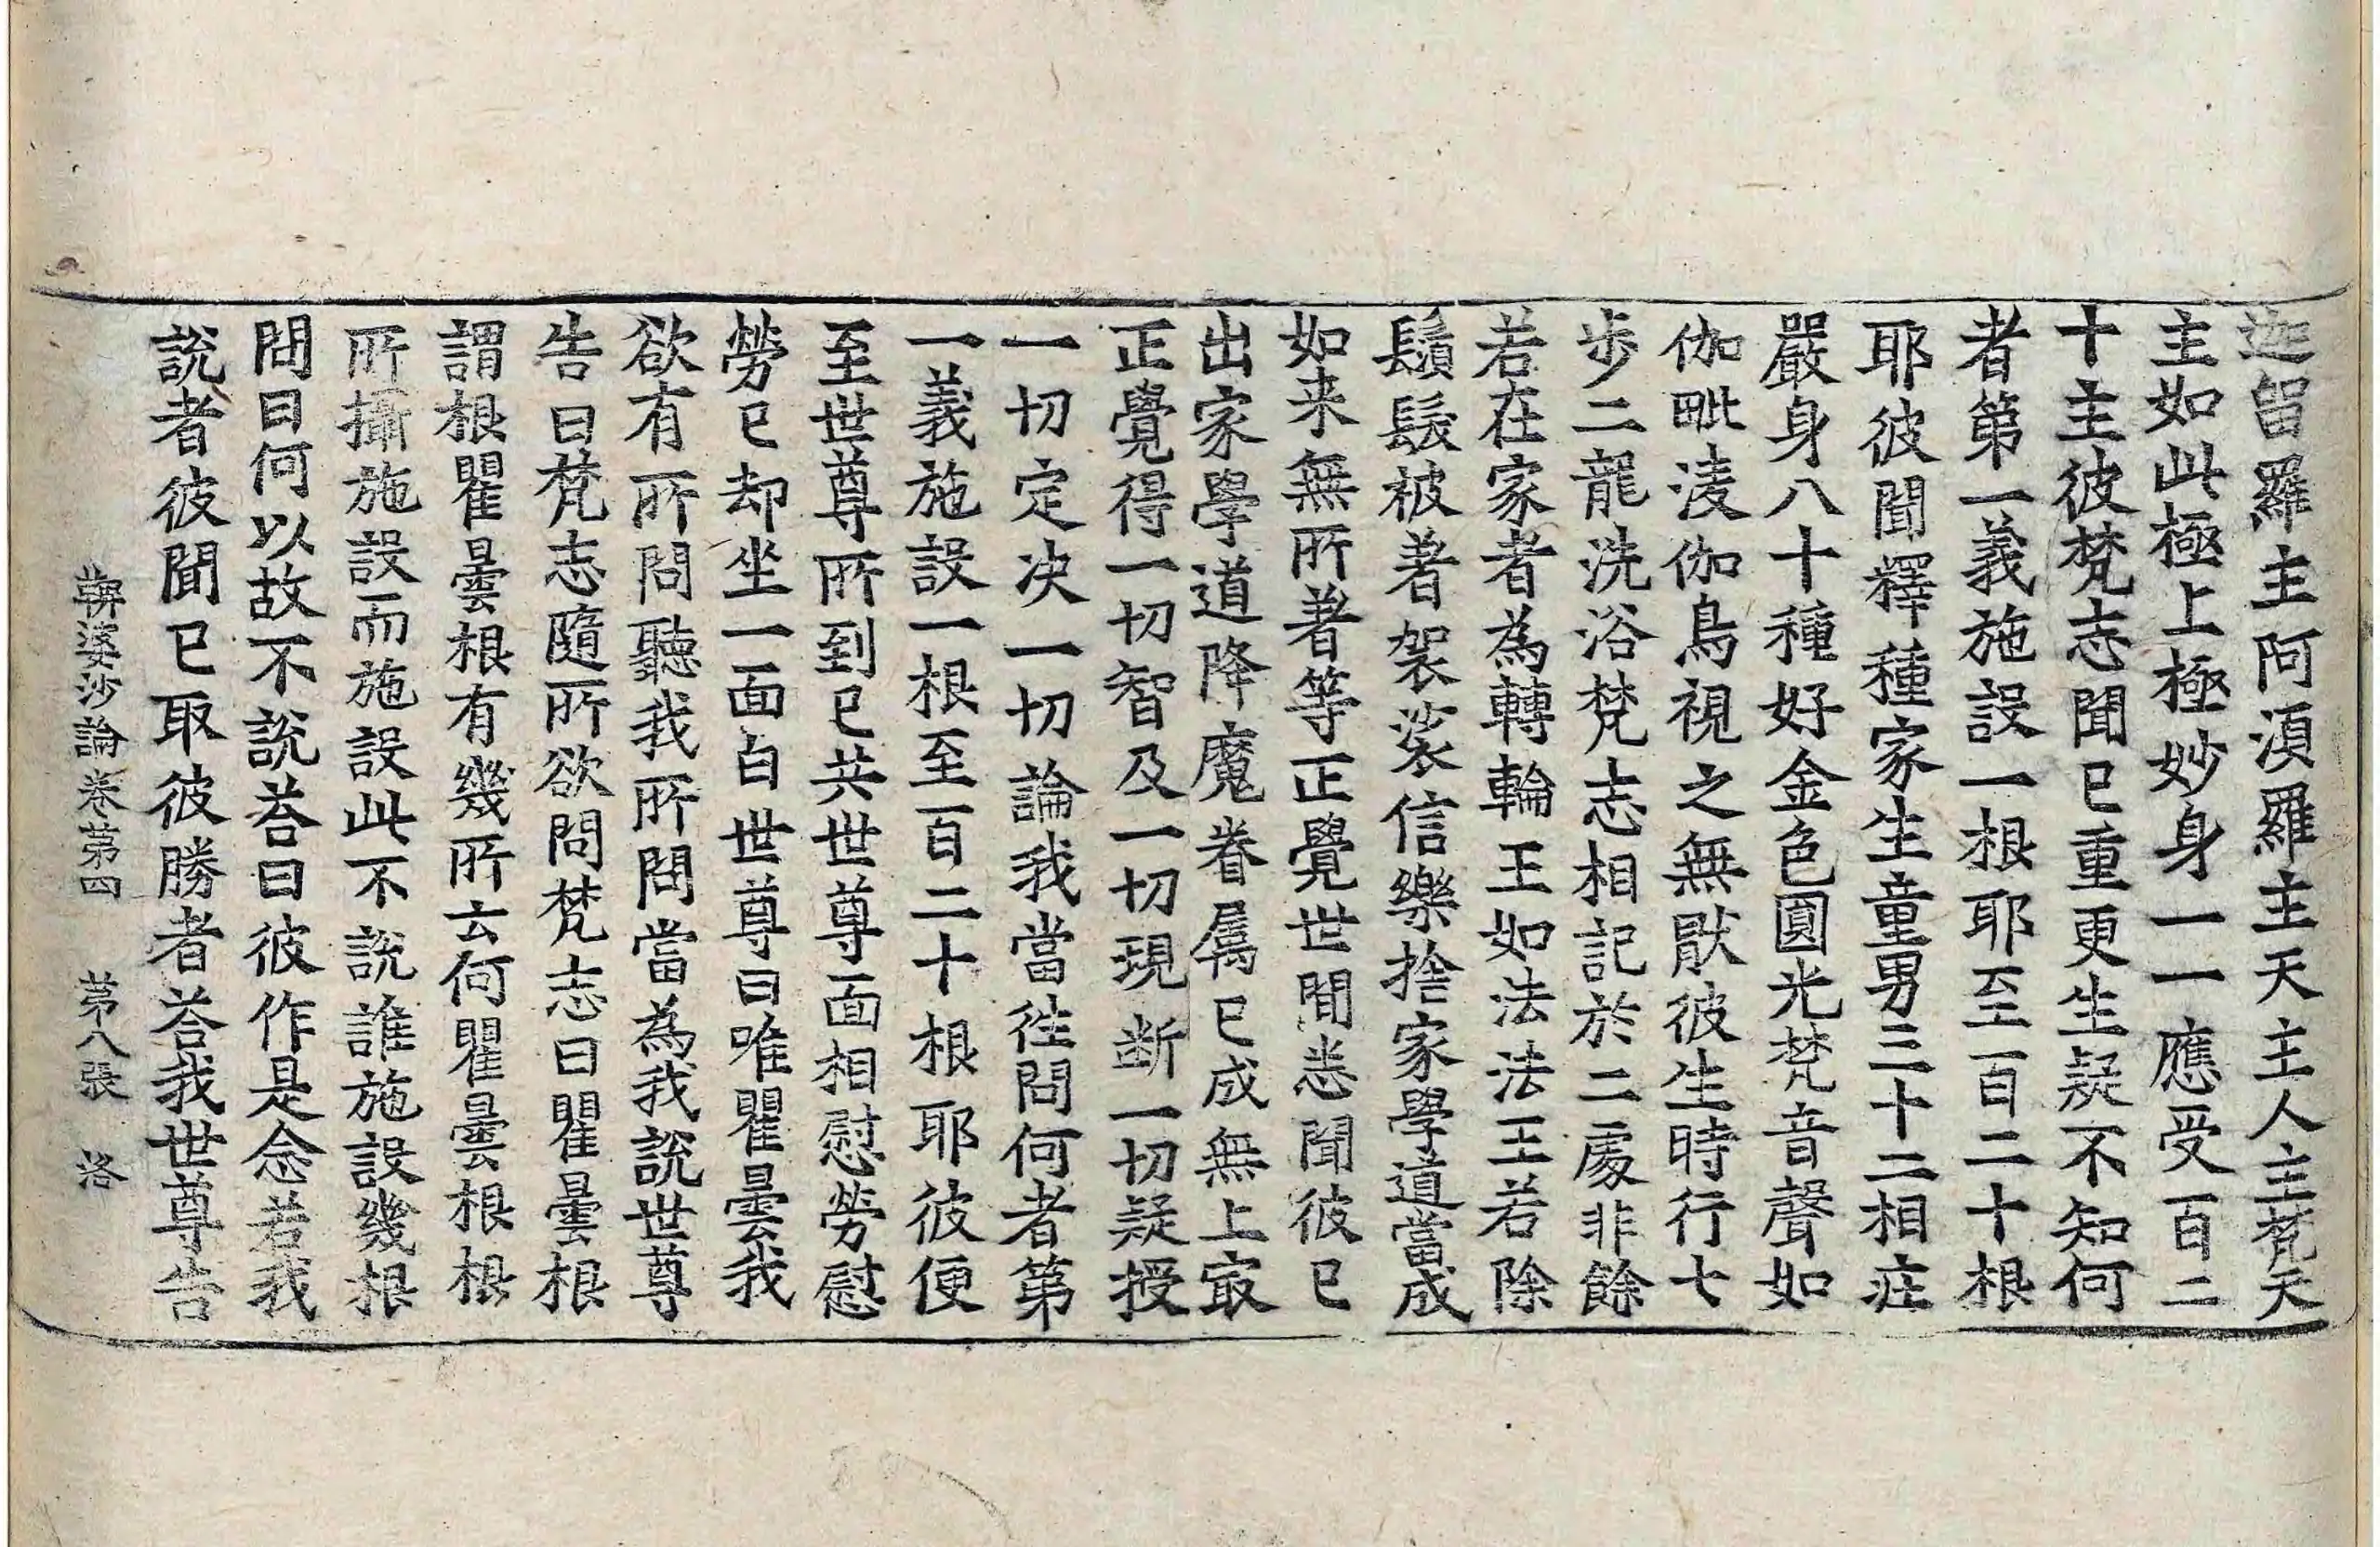 迦留羅主阿須羅主天主人主梵天
主如此極上極妙身一一應受百二
十主彼梵志聞已重更生疑不知何
者第一義施設一根耶至百二十根
耶彼聞釋種家生童男三十二相庄
嚴身八十種好金色圓光梵音聲如
伽毗淩伽鳥視之無猒彼生時行七
步二龍洗浴梵志相記於二處非餘
若在家者為轉輪王如法法王若除
鬚髮被著袈裟信樂捨家學道當成
如来無所著等正覺世間悉聞彼已
出家學道降魔眷属已成無上㝡
正覺得一切智及一切現断一切疑授
一切定决一切論我當往問何者第
一義施設一根至百二十根耶彼便
至世尊所到已共世尊面相慰勞慰
勞已却坐一面白世尊曰唯瞿曇我
欲有所問聽我所問當為我說世尊
告曰梵志隨所欲問梵志曰瞿曇根
謂根瞿曇根有幾所云何瞿曇根根
所攝施設而施設此不說誰施設幾根
問曰何以故不說荅曰彼作是念若我
說者彼聞已取彼勝者荅我世尊告
鞞婆沙論卷第四　第八張　洛